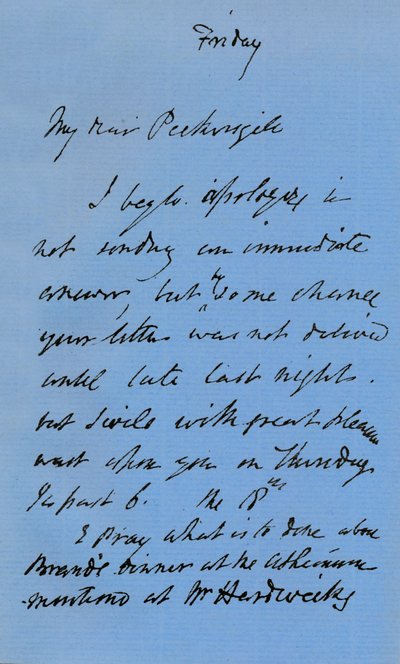 Friday
My dear Pickersgill
I beg to apologize in
not sending an immediate
answer, but by some chance
your letter was not delivered
until late last night.
but I will with great pleasure
wait upon you on Thursday
½ past 6. the 18th
& Pray what is to done about
Brande dinner at the Athenaeum
mentiond at Mr Hardwicks